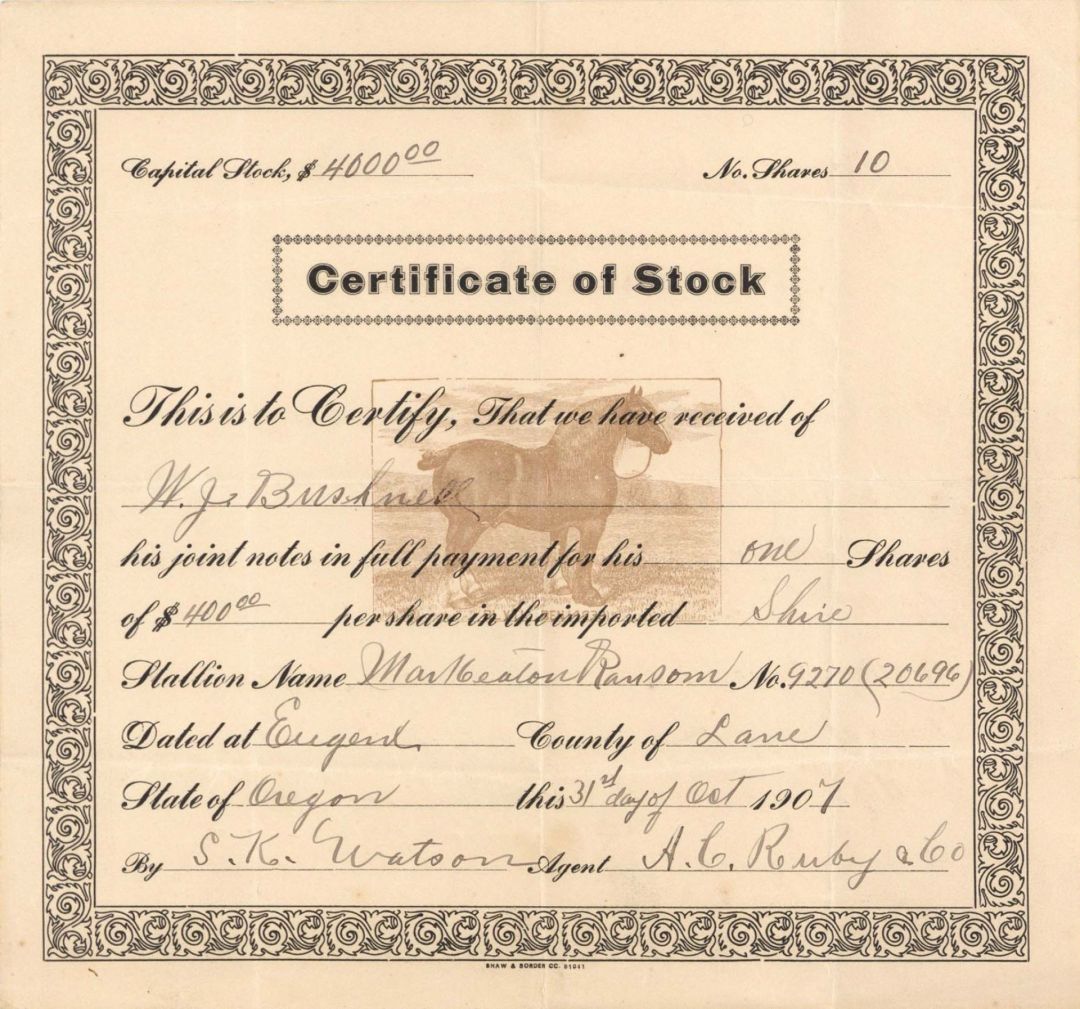 Capital Stock, $ 4000.00 No. Shares 10
Certificate of Stock
This is to Certify, That we have received of
W. J. Bushnell
his joint notes in full payment for his one Shares
of $ 400.00 per share in the imported Shire
Stallion Name Ransom No. 9270 (20696)
Dated at Eugene County of Lane
State of Oregon this 31rd day of Oct 1907
By S. K. Watson Agent A. C. Ruby & Co
SHAW & BORDER CO. 91041